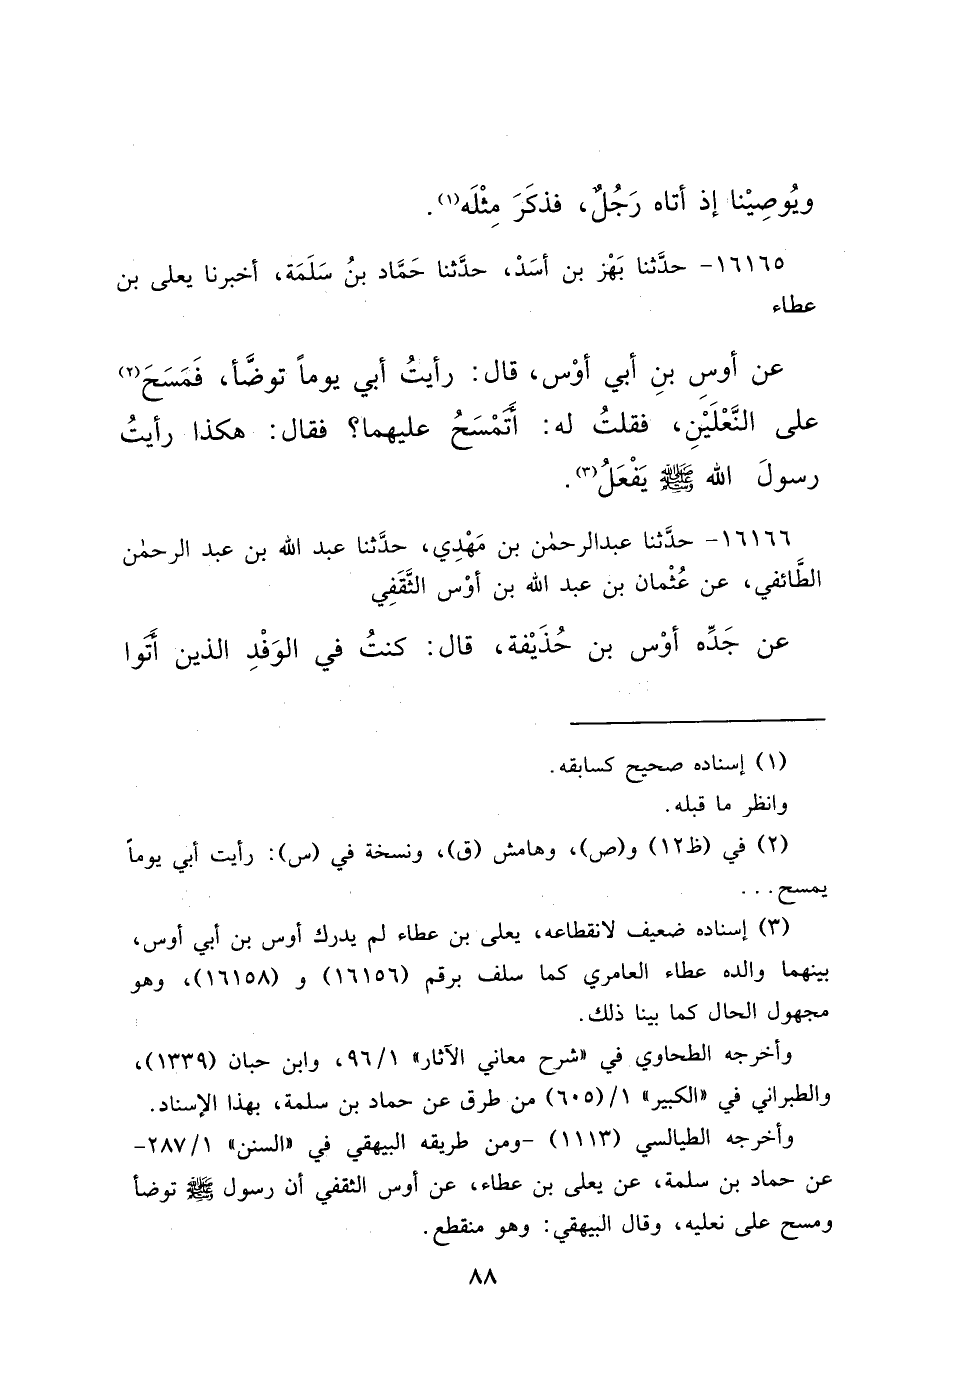 ويُوصِيْنا إذ أتاه رَجُلٌ، فذكَرَ مِثْلَه(١).
١٦١٦٥- حدَّثنا بَهْز بن أسَدْ، حدَّثنا حَمَّاد بنُ سَلَمَة، أخبرنا يعلى بن
عطاء
عن أوسِ بنِ أبي أوْس، قال: رأيتُ أبي يوماً توضَّأ، فَمَسَحَ(٢)
على النَّعْلَيْنِ، فقلتُ له: أَتَمْسَحُ عليهما؟ فقال: هكذا رأيتُ
رسولَ الله ﷺ يَفْعَلُ(٣).
١٦١٦٦- حدَّثنا عبدالرحمٰن بن مَهْدِي، حدَّثنا عبد الله بن عبد الرحمٰن
الطَّائفي، عن عُثْمان بن عبد الله بن أوْس الثَّقَفِي
عن جَدِّه أوْس بن حُذَيْفة، قال: كنتُ في الوَفْدِ الذين أَتَوا
(١) إسناده صحيح كسابقه.
وانظر ما قبله.
(٢) في (ظ١٢) و(ص)، وهامش (ق)، ونسخة في (س): رأيت أبي يوماً
يمسح...
(٣) إسناده ضعيف لانقطاعه، يعلى بن عطاء لم يدرك أوس بن أبي أوس،
بينهما والده عطاء العامري كما سلف برقم (١٦١٥٦) و (١٦١٥٨)، وهو
مجهول الحال كما بينا ذلك.
وأخرجه الطحاوي في «شرح معاني الآثار» ٩٦/١، وابن حبان (١٣٣٩)،
والطبراني في «الكبير» ١/(٦٠٥) من طرق عن حماد بن سلمة، بهذا الإسناد.
وأخرجه الطيالسي (١١١٣) -ومن طريقه البيهقي في «السنن» ٢٨٧/١-
عن حماد بن سلمة، عن يعلى بن عطاء، عن أوس الثقفي أن رسول ﷺ توضأ
ومسح على نعليه، وقال البيهقي: وهو منقطع.
٨٨